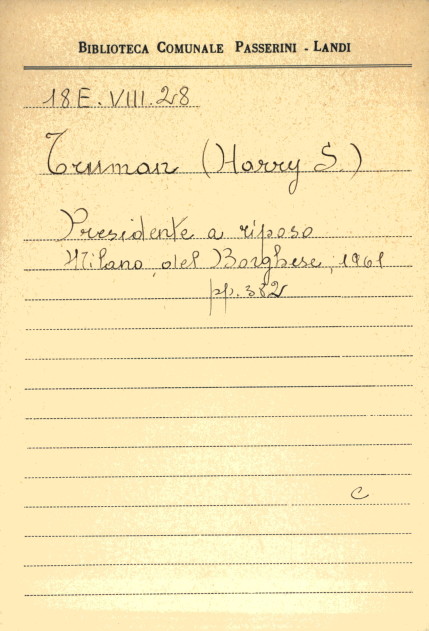 BIBLIOTECA COMUNALE PASSERINI - LANDI
18 E. VIII. 28
Truman (Harry S.)
Presidente a riposo
Milano, del Borghese, 1961
pp. 382
C